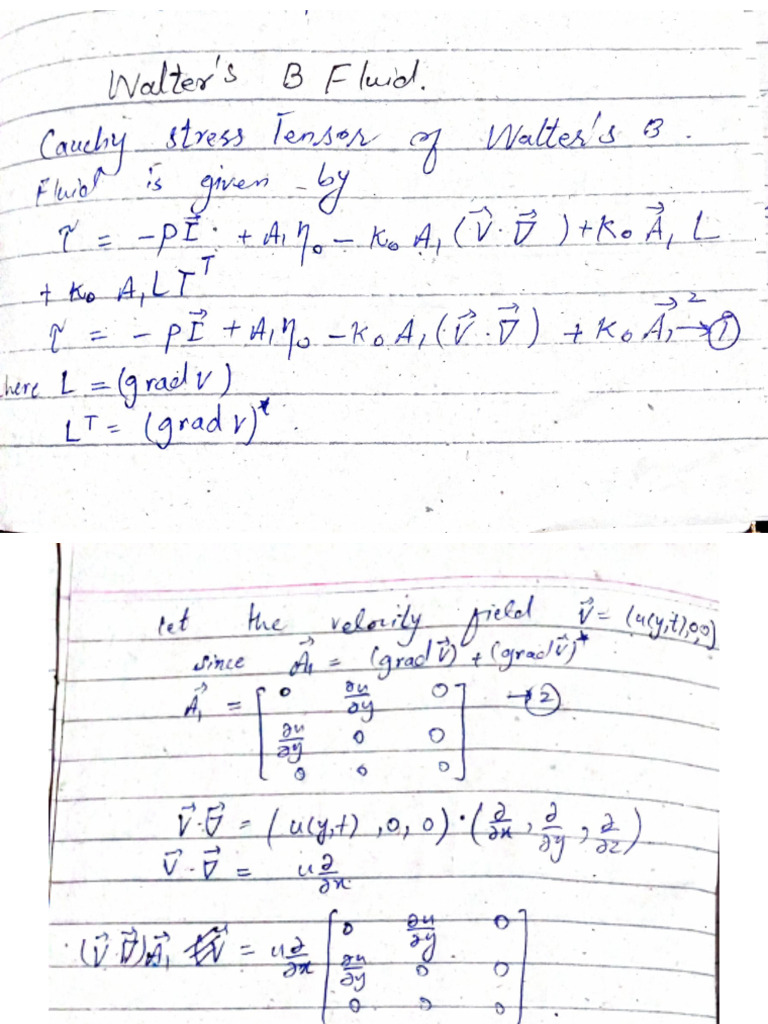 Walter's B Fluid.
Cauchy stress Tensor of Walter's B.
Fluid is given by
τ = -pI⃗ + A₁η₀ - K₀ A₁(V⃗·∇⃗) + K₀ A⃗₁ L
+ K₀ A₁ L T^T
τ = -pI⃗ + A₁η₀ - K₀A₁(V⃗·∇⃗) + K₀ A⃗₁² → ①
here L = (grad V)
L^T = (grad V)*
let the velocity field V⃗ = (u(y,t),0,0)
since A⃗₁ = (grad V⃗) + (grad V⃗)*
A⃗₁ = [0 ∂u/∂y 0 → ②
∂u/∂y 0 0
0 0 0]
V⃗·∇⃗ = (u(y,t), 0, 0)·(∂/∂x, ∂/∂y, ∂/∂z)
V⃗·∇⃗ = u∂/∂x
(V⃗·∇⃗)A⃗₁ = u∂/∂x [0 ∂u/∂y 0
∂u/∂y 0 0
0 0 0]